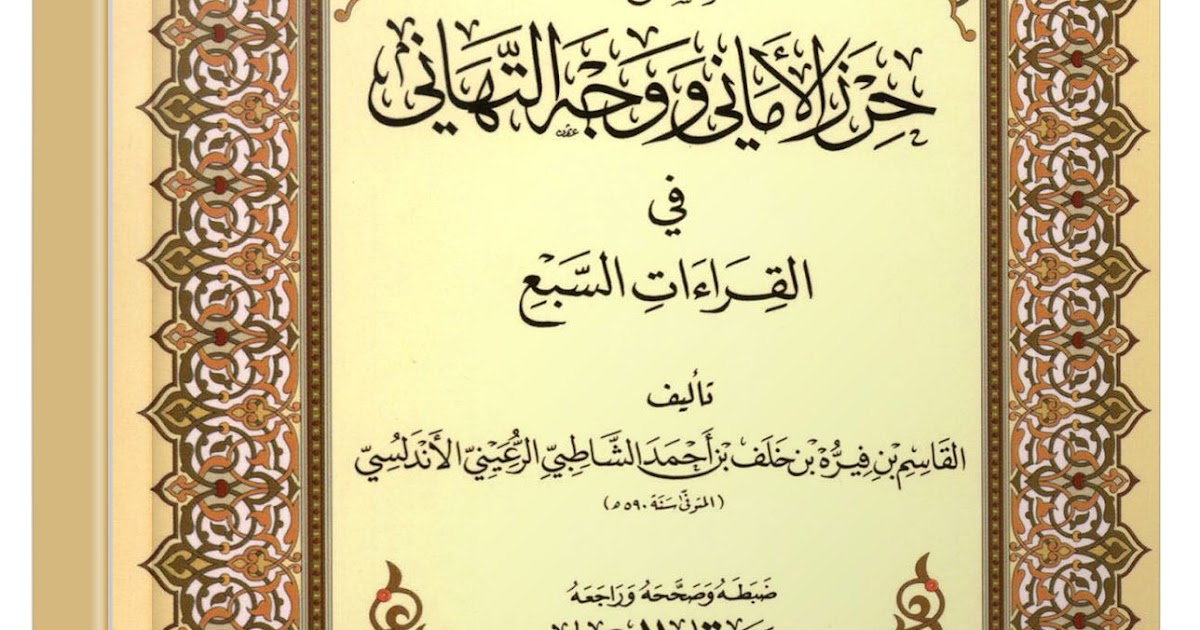 حِرْزُ الأَمَانِي وَوَجْهُ التَّهَانِي
في
القِرَاءَاتِ السَّبْعِ
تأليف
القَاسِم بْنِ فِيرُّهْ بْنِ خَلَف بْنِ أَحْمَدَ الشَّاطِبِيِّ الرُّعَيْنِيِّ الأَنْدَلُسِيِّ
(المتوفى سَنَة ٥٩٠ هـ)
ضَبَطَهُ وَصَحَّحَهُ وَرَاجَعَهُ